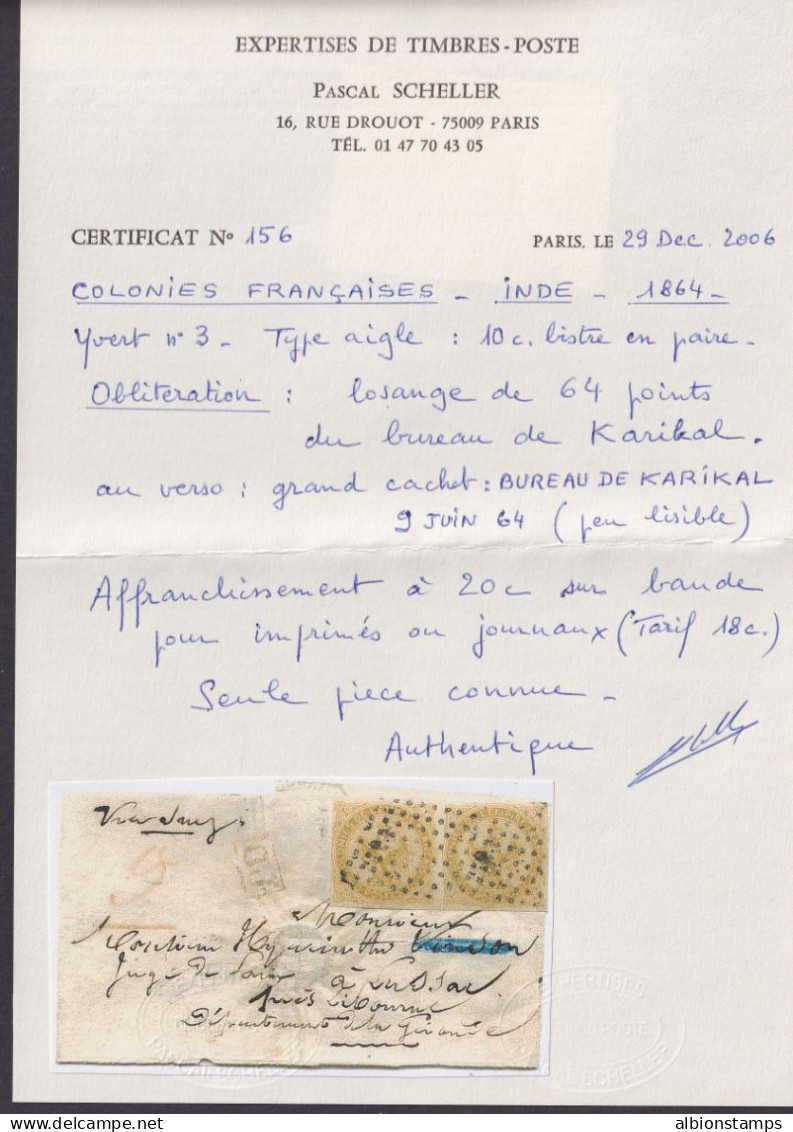 EXPERTISES DE TIMBRES-POSTE
PASCAL SCHELLER
16, RUE DROUOT - 75009 PARIS
TÉL. 01 47 70 43 05
CERTIFICAT No 156 PARIS, LE 29 Dec. 2006
COLONIES FRANÇAISES - INDE - 1864 -
Yvert n° 3 - Type aigle : 10 c. bistre en paire -
Obliteration : losange de 64 points
du bureau de Karikal.
au verso : grand cachet : BUREAU DE KARIKAL
9 JUIN 64 (peu lisible)
Affranchissement à 20 c sur bande
pour imprimés ou journaux (Tarif 18 c.)
Seule piece connue -
Authentique
Via Suez
Monsieur
Hyacinthe
Juge de Paix à Lussac
près Libourne
Département de la Gironde
EXPERTISES
PASCAL SCHELLER
albionstamps